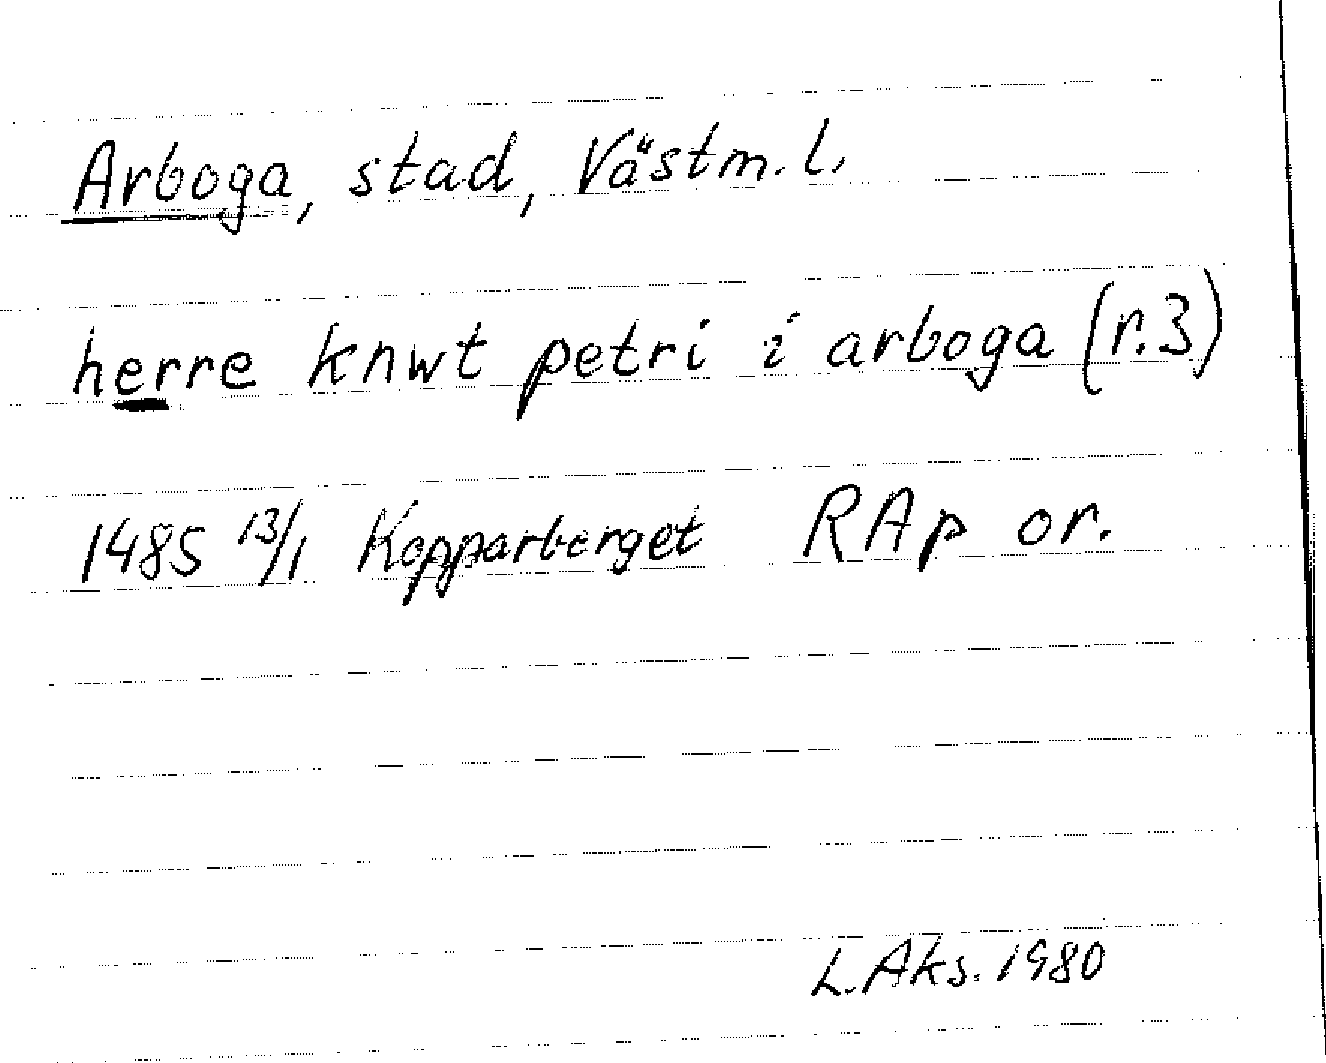 Arboga, stad, Västm. l.
herre knwt petri i arboga (r.3)
1485 13/1 Kopparberget RAp or.
L.Aks. 1980